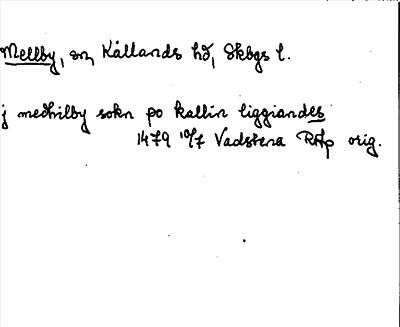 Mellby, sn, Kållands hd, Skbgs l.
j medhilby sokn po kallin liggiandes
1479 10/7 Vadstena RAp orig.